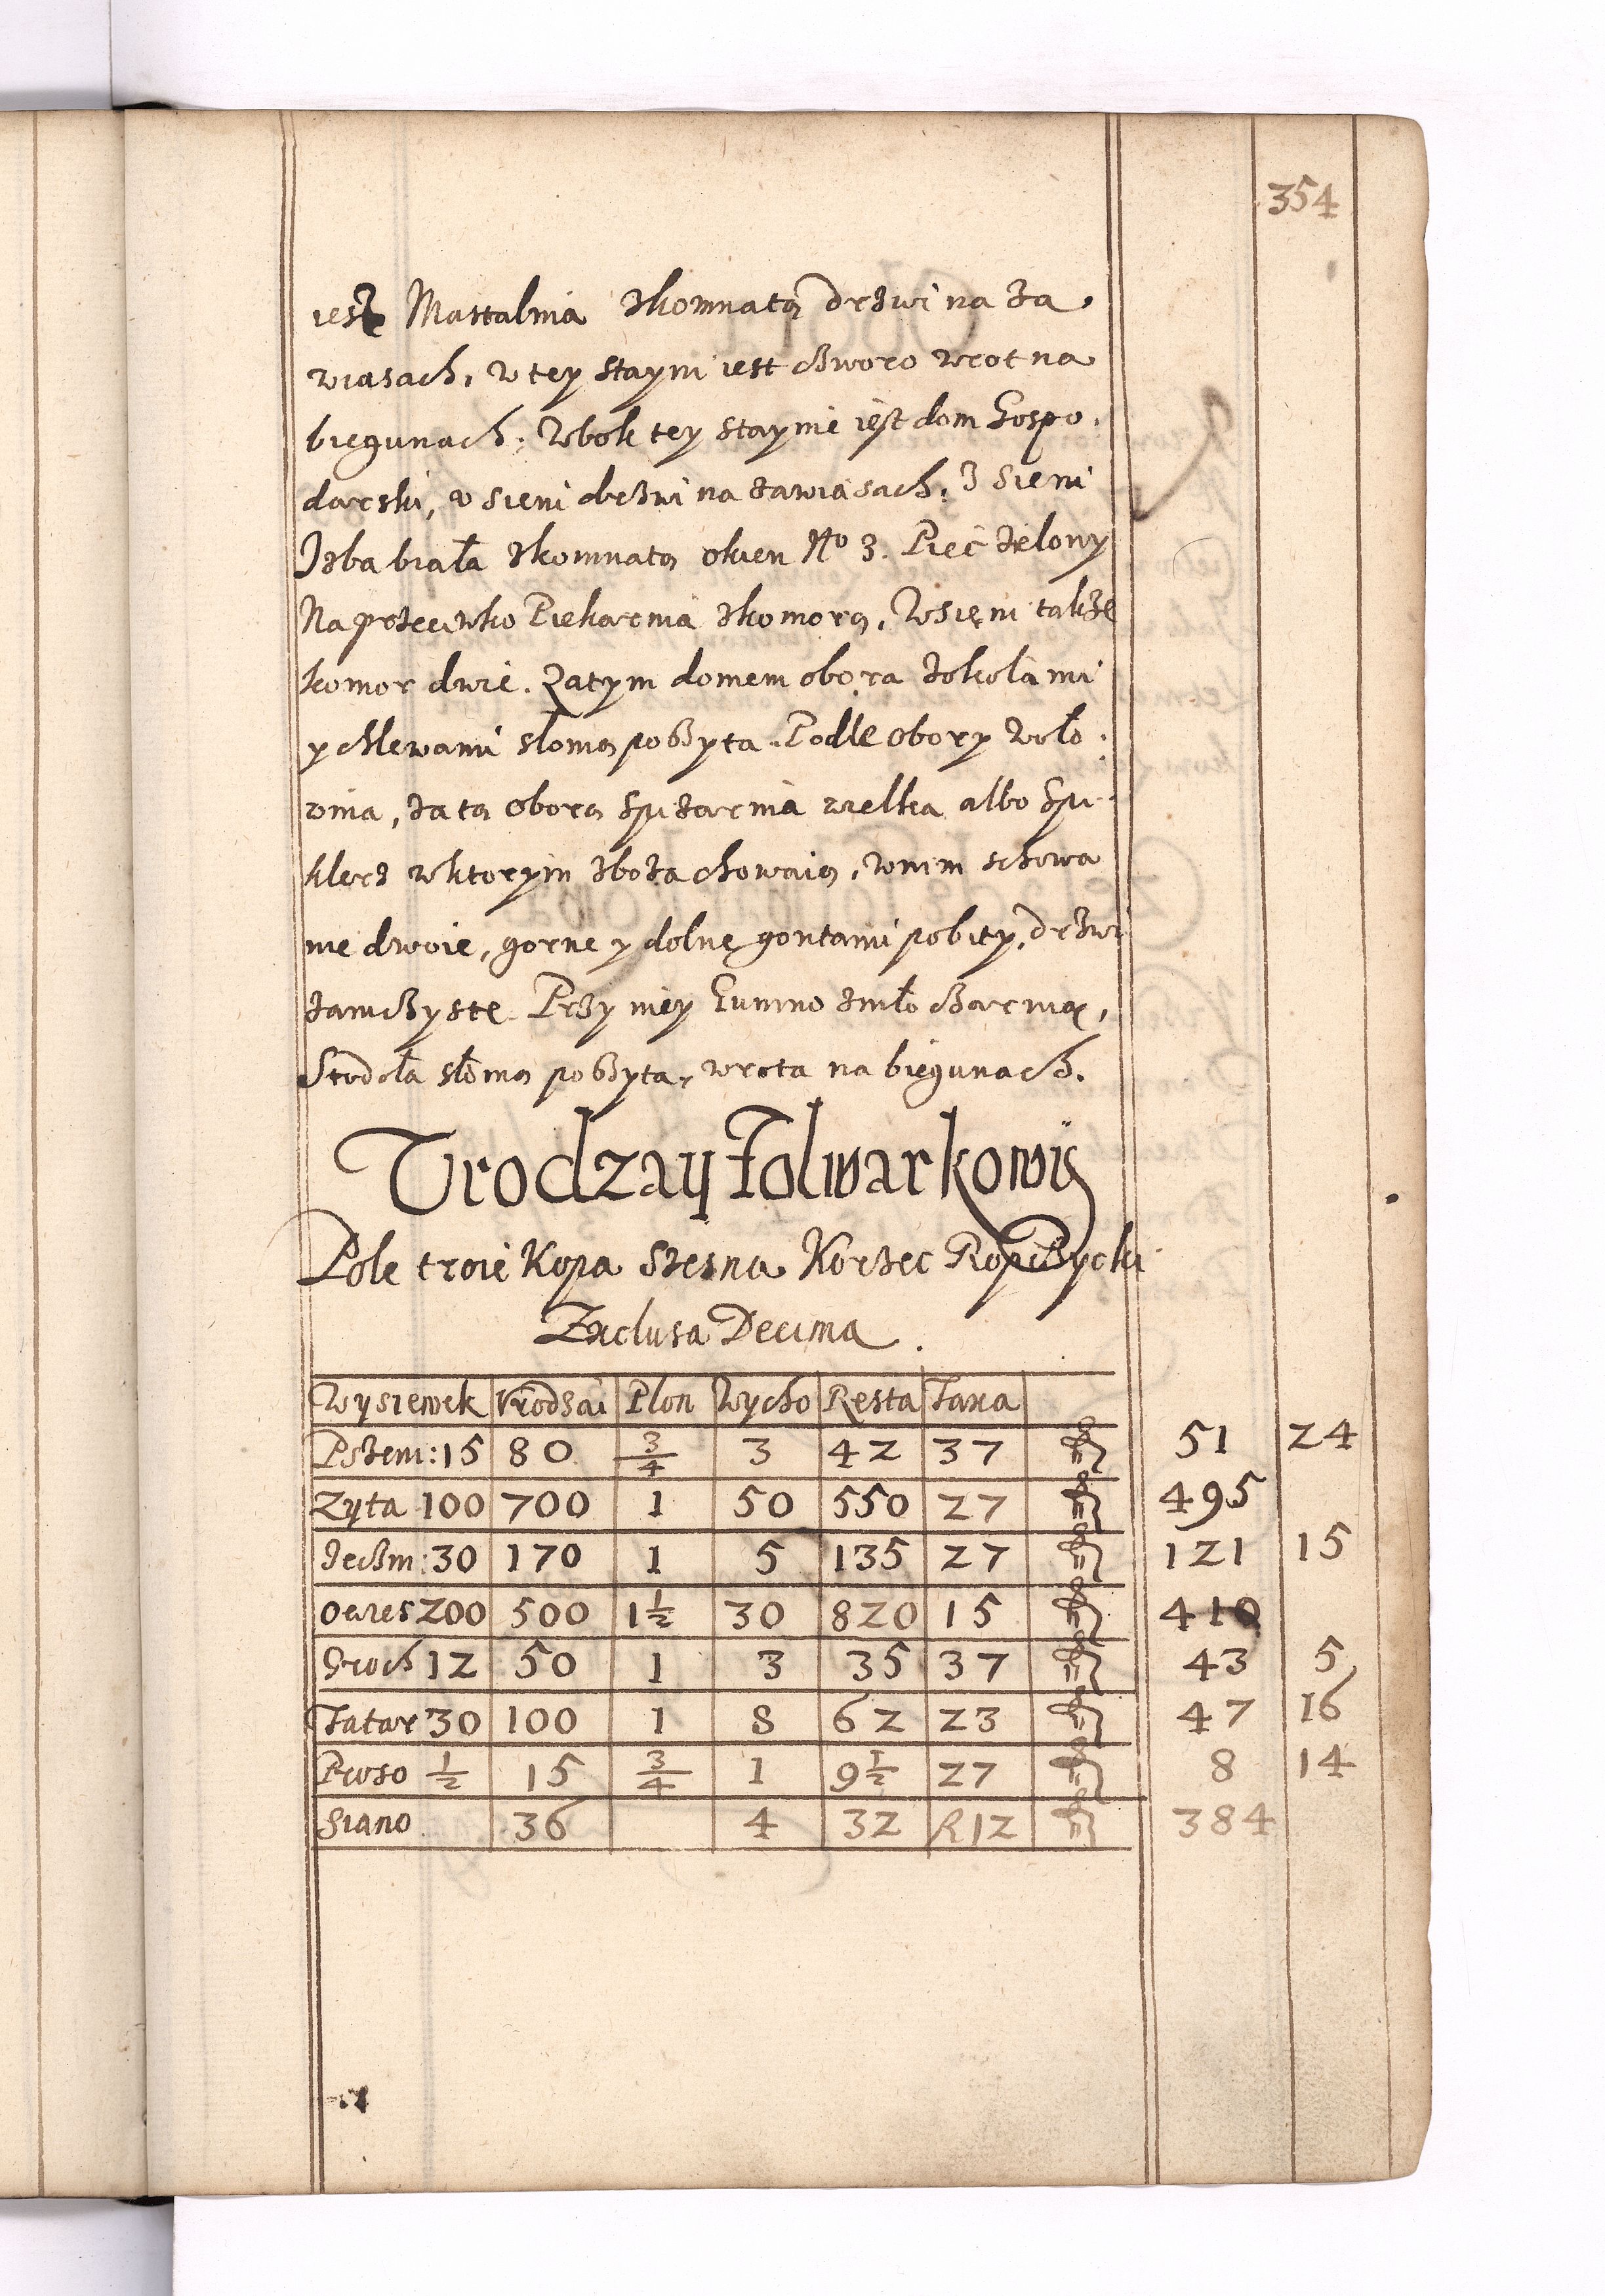 354
iest Mastalnia zkomnatą drzwi na za
wiasach, w tey stayni iest czworo wrot na
biegunach; Wbok tey staynie iest dom Gospo,
darski, w sieni drzwi na zawiasach, z sieni
Izba biała zkomnatą okien No 3. Piec zielony
Naprzeciwko Piekarnia zkomorą, Wsieni także
komor dwie. Zatym domem obora zokołami
y chlewami słomą poszyta. Podle obory woło,
wnia, za tą oborą spizarnia wielka albo Spi,
klerz wktorym zboża chowaią, wnim schowa
nie dwoie, gorne y dolne gontami pobity, drzwi
zamczyste. Przy niey Gumno zmłoczarnią,
Stodoła słomą poszyta, wrota na biegunach.
Vrodzay Folwarkowy
Pole troie Kopa Szesna Korzec Ropczycki
Exclusa Decima.
Wysiewek Vrodzai Plon Wycho Resta Taxa
Pszem: 15 80 3/4 3 42 37 51 24
Zyta 100 700 1 50 550 27 495
Jeczm: 30 170 1 5 135 27 121 15
Owies 200 500 1 1/2 30 820 15 410
Groch 12 50 1 3 35 37 43 5
Tatar 30 100 1 8 62 23 47 16
Proso 1/2 15 3/4 1 9 1/2 27 8 14
Siano 36 4 32 R12 384